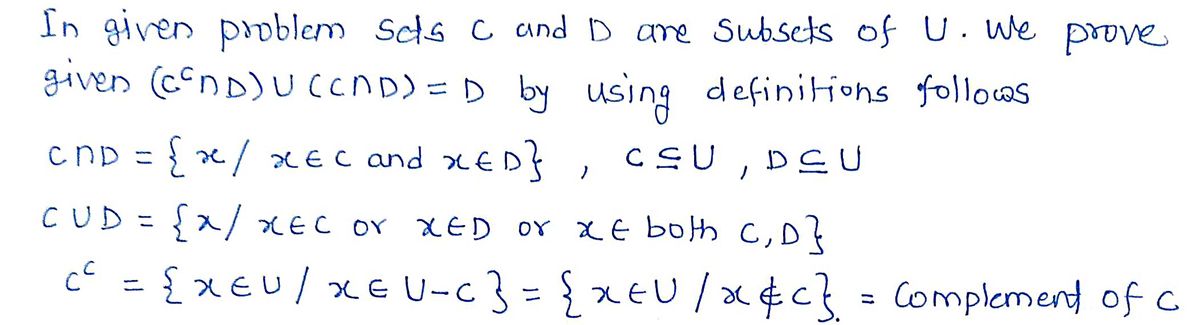 In given problem sets C and D are subsets of U. We prove
given (Cᶜ∩D)∪(C∩D) = D by using definitions follows
C∩D = {x/ x∈C and x∈D} , C⊆U , D⊆U
C∪D = {x/ x∈C or x∈D or x∈ both C,D}
Cᶜ = {x∈U/ x∈U-C} = {x∈U/x∉C}. = Complement of C